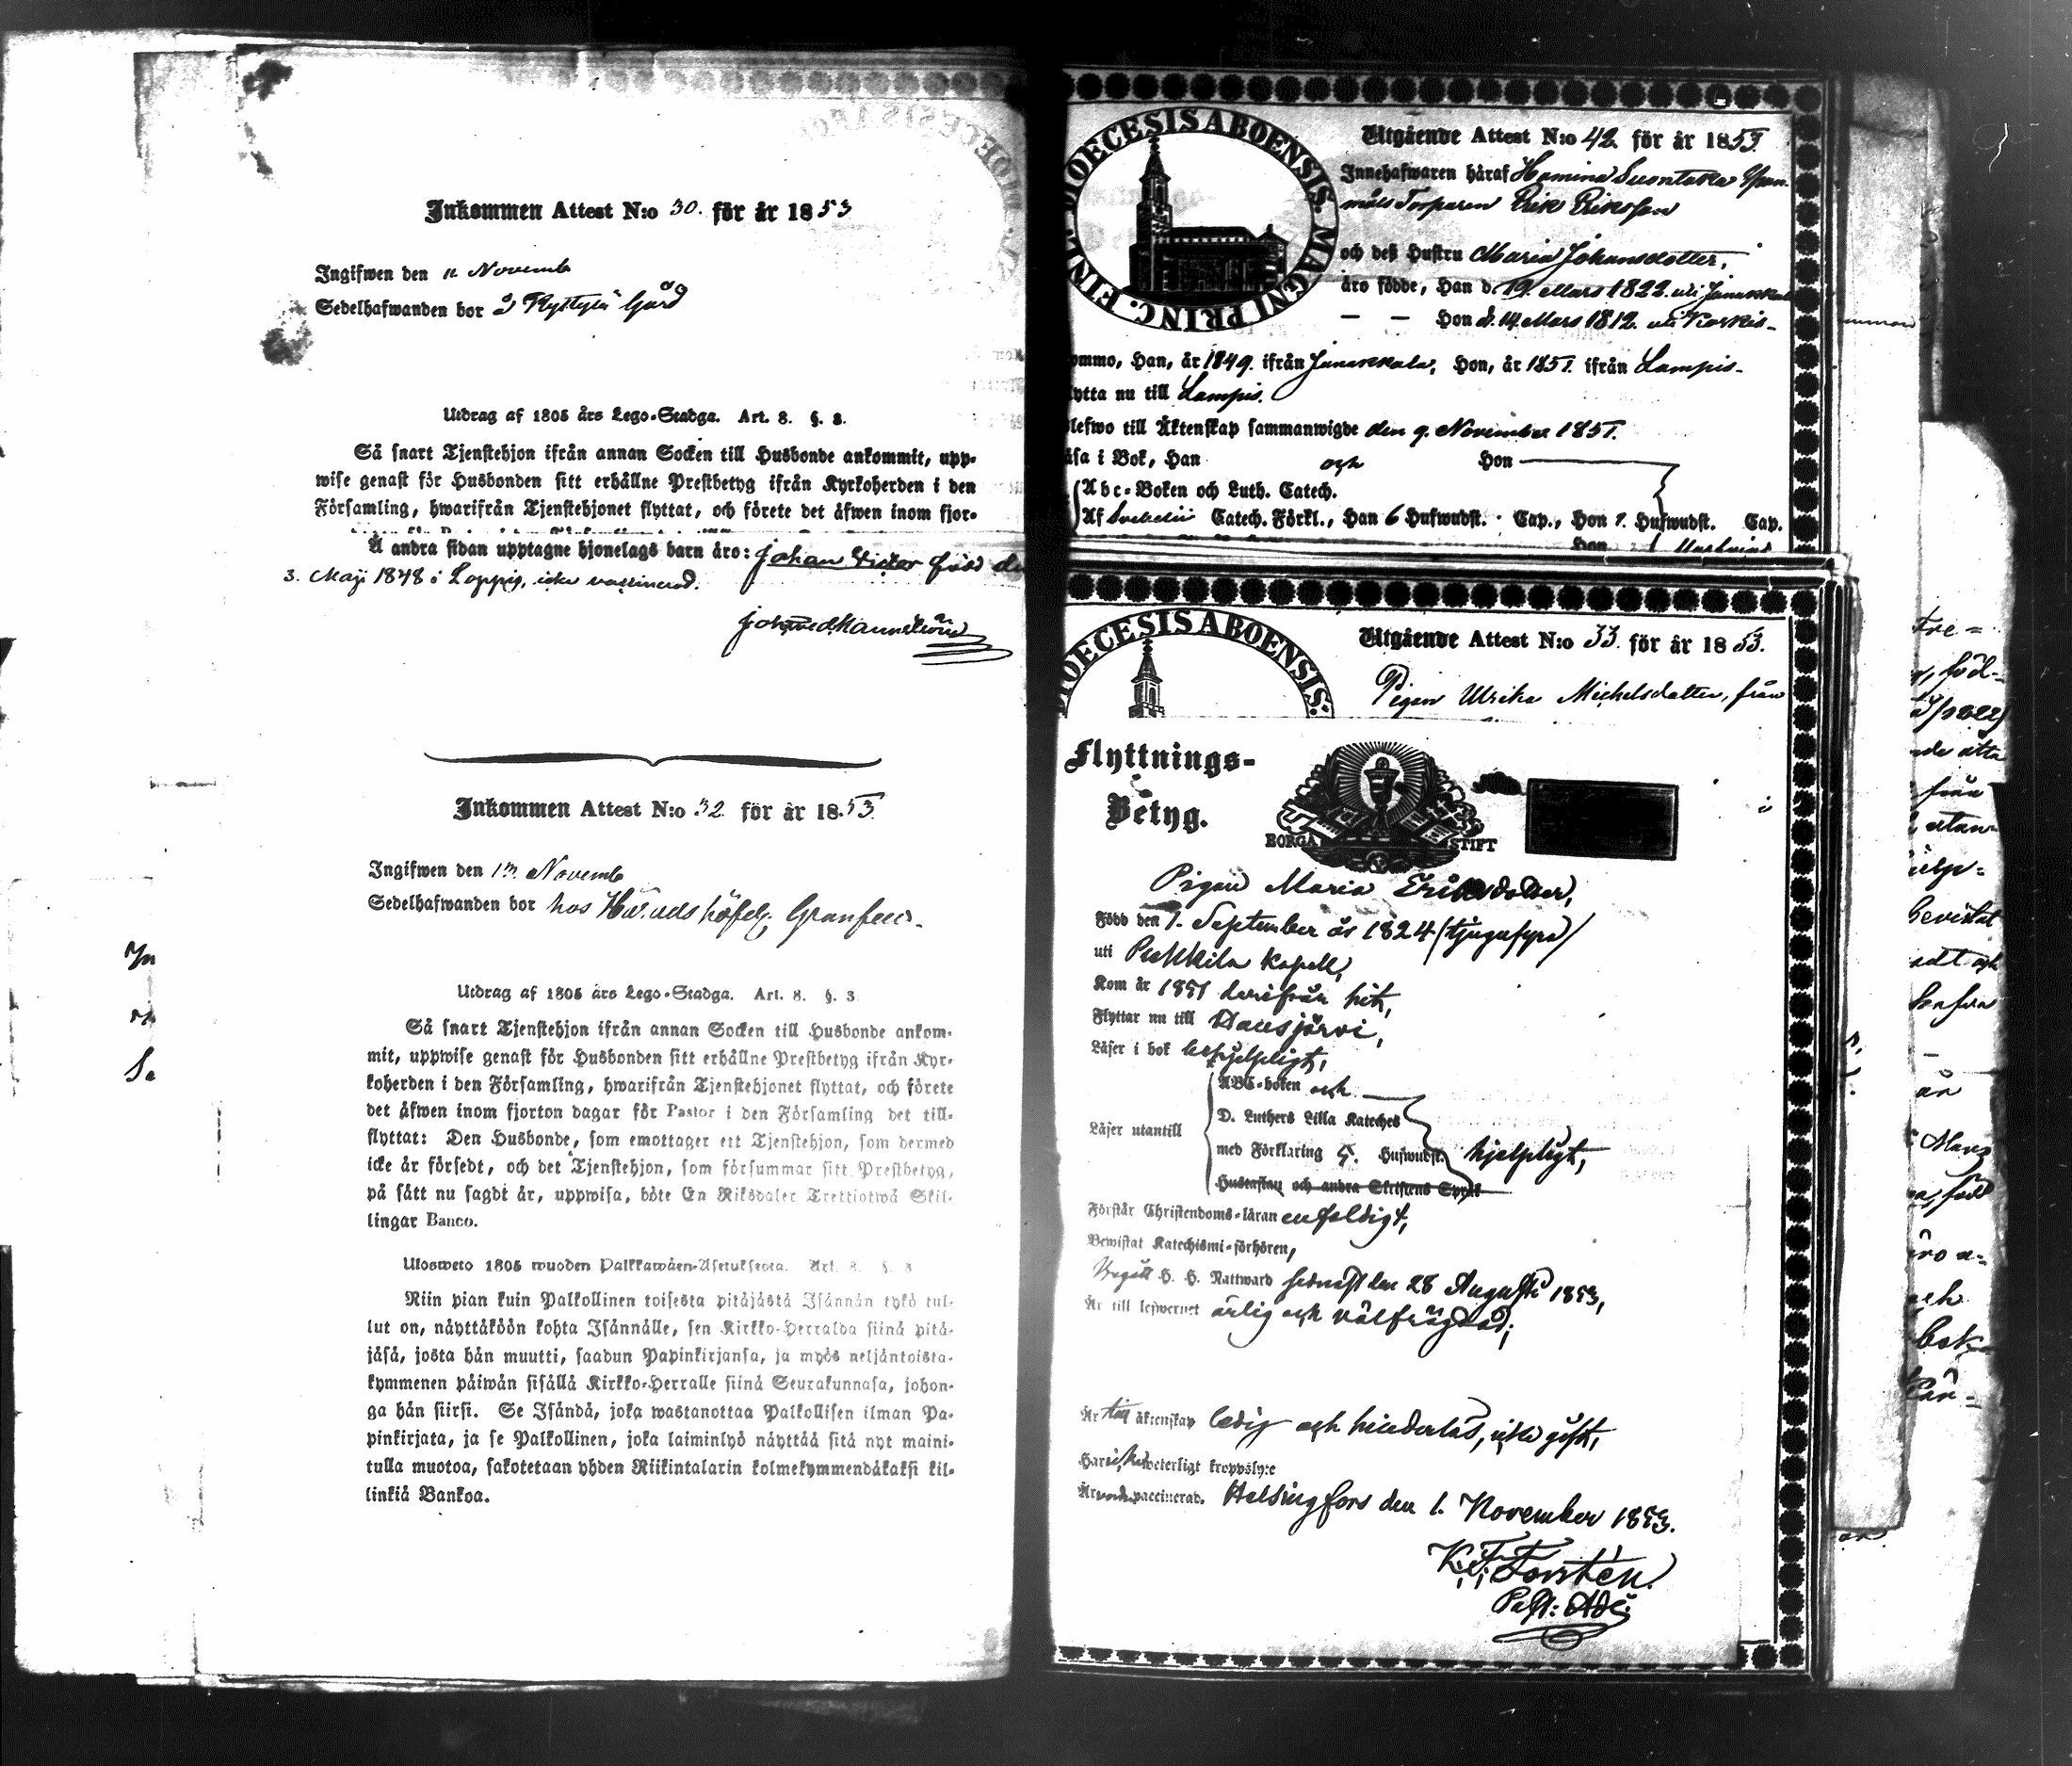 Inkommen Attest N:o 30. för år 1853
Ingifwen den 11 Novemb
Sedelhafwanden bor å Ryttylä Gård
Utdrag af 1805 års Lego-Stadga. Art. 8. §. 3.
Så snart Tjenstehjon ifrån annan Socken till Husbonde ankommit, upp-
wise genast för Husbonden sitt erhållne Prestbetyg ifrån Kyrkoherden i den
Församling, hwarifrån Tjenstehjonet flyttat, och förete det äfwen inom fjor-
Å andra sidan upptagne hjonelags barn äro: Johan Victor född d
3. Maji 1848 i Loppis, icke vaccinerad.
Inkommen Attest N:o 32 för år 1853.
Ingifwen den 13 Novemb
Sedelhafwanden bor hos Häradshöfd.
Utdrag af 1805 års Lego-Stadga. Art. 8. §. 3.
Så snart Tjenstehjon ifrån annan Socken till Husbonde ankom-
mit, uppwise genast för Husbonden sitt erhållne Prestbetyg ifrån Kyr-
koherden i den Församling, hwarifrån Tjenstehjonet flyttat, och förete
det äfwen inom fjorton dagar för Pastor i den Församling det till-
flyttat: Den Husbonde, som emottager ett Tjenstehjon, som dermed
icke är försedt, och det Tjenstehjon, som försummar sitt Prestbetyg,
på sätt nu sagdt är, uppwisa, böte En Riksdaler Trettiotwå Skil-
lingar Banco.
Ulosweto 1805 wuoden Palkkawäen-Asetuksesta. Art. 8. §. 3
Niin pian kuin Palkollinen toisesta pitäjästä Isännän tykö tul-
lut on, näyttäköön kohta Isännälle, sen Kirkko-Herralda siinä pitä-
jäsä, josta hän muutti, saadun Papinkirjansa, ja myös neljäntoista-
kymmenen päiwän sisällä Kirkko-Herralle siinä Seurakunnasa, johon-
ga hän siirsi. Se Isändä, joka wastanottaa Palkollisen ilman Pa-
pinkirjata, ja se Palkollinen, joka laiminlyö näyttää sitä nyt maini-
tulla muotoa, sakotetaan yhden Riikintalarin kolmekymmendäkaksi kil-
linkiä Bankoa.
DIOECESIS ABOENSIS. MAGNI PRINC. FINL.
Utgående Attest N:o 42. för år 1853.
Innehafwaren häraf Hamina Suontaka
Torparen Erik Eriksson
och deß Hustru Maria Johansdotter,
äro födde, Han d. 19. Mars 1822. uti Janakkala
— — Hon d. 14 Mars 1812. uti
ommo, Han, år 1849. ifrån Janakkala, Hon, år 1851. ifrån Lampis.
lytta nu till Lampis.
lefwo till Äktenskap sammanwigde den 9. November 1851.
äsa i Bok, Han och Hon
Abc-Boken och Luth. Catech.
Af Svebelii Catech. Förkl., Han 6 Hufwudst. Cap., Hon 1. Hufwudst. Cap.
DIOECESIS ABOENSIS.
Utgående Attest N:o 33 för år 1853.
Pigan Ulrika Michelsdotter, från
Flyttnings-
Betyg.
BORGÅ STIFT
Pigan Maria Eriksdotter,
Född den 1. September år 1824 /tjugufyra/
uti Pukkila kapell,
Kom år 1851 derifrån hit,
Flyttar nu till Hausjärvi,
Läser i bok behjelpligt,
ABC-boken och
D. Luthers Lilla Kateches
Läser utantill
med Förklaring 5. Hufwudst. hjelpligt,
Hustaflan och andra Skriftens Språk
Förstår Christendoms-läran enfaldigt,
Bewistat Katechismi-förhören,
Begått H. H. Nattward sednast den 28 Augusti 1853,
Är till lefwernet ärlig och välfrägdad;
Är till äktenskap ledig och hinderlös, icke gift,
Har icke weterligt kroppslyte
Är vaccinerad. Helsingfors den 1. November 1853.
K. F. Forstén.
Past: Adj: